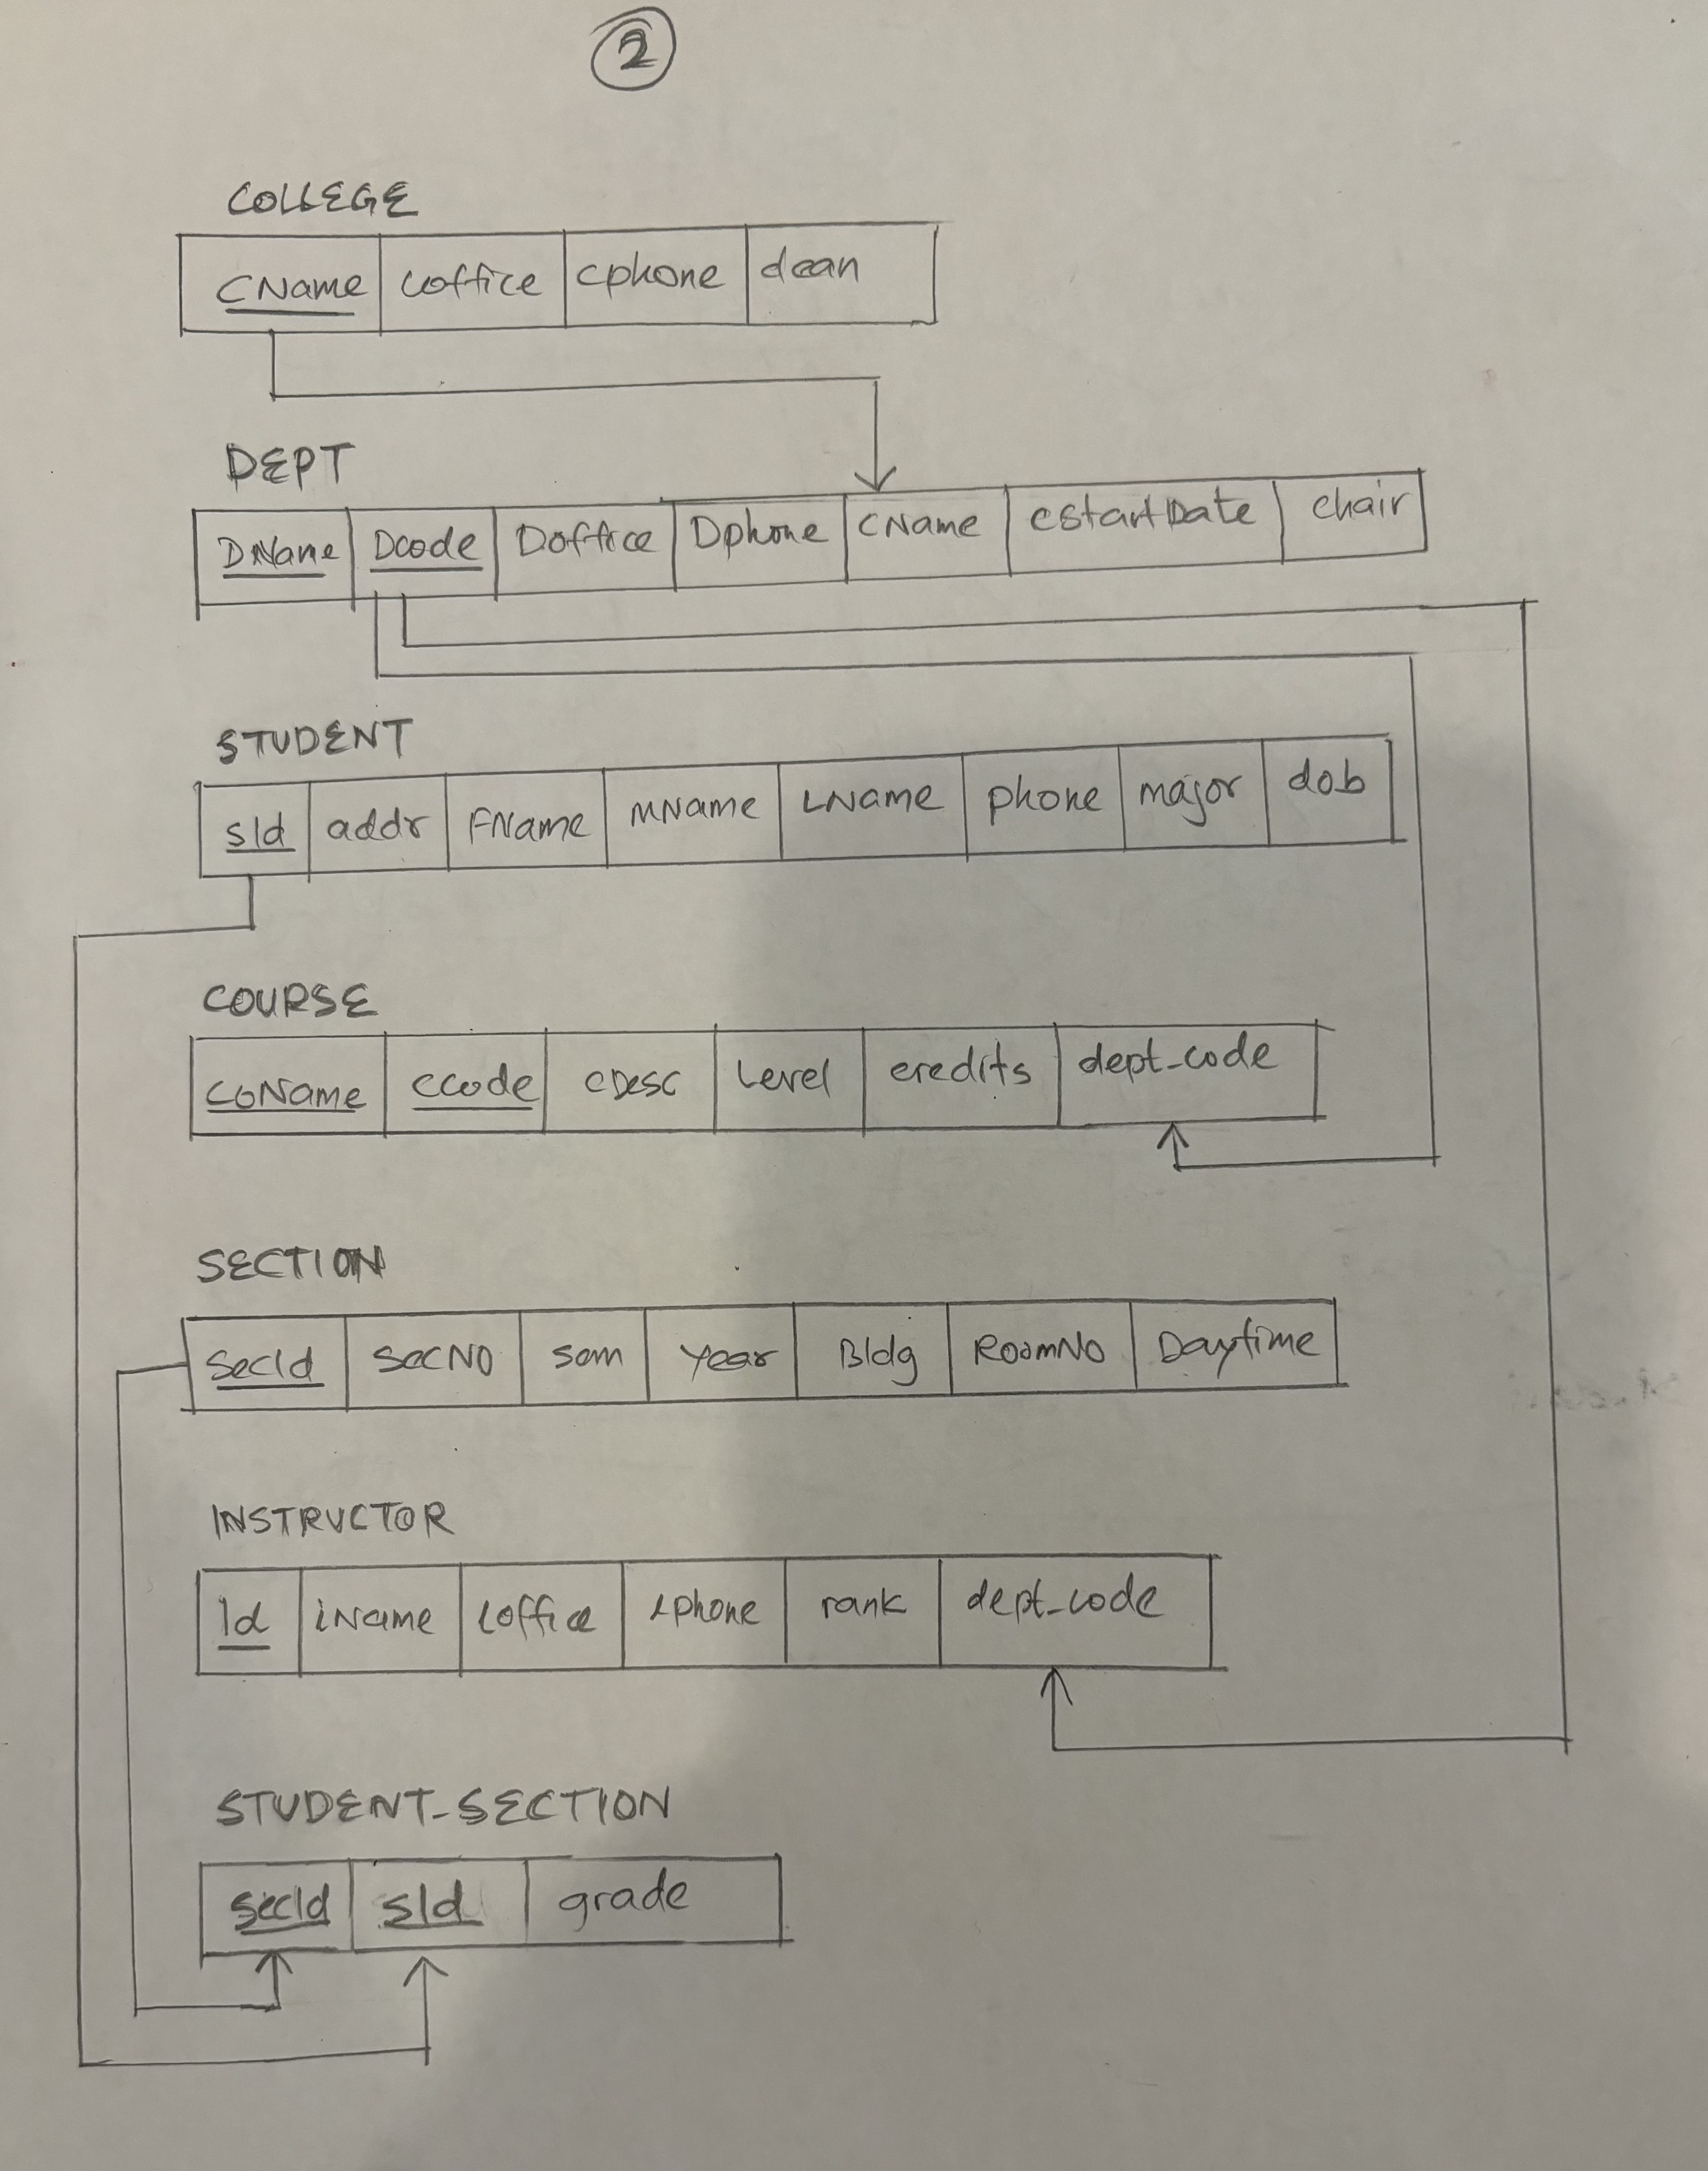 2
COLLEGE
CName Coffice Cphone dean
DEPT
DName Dcode Doffice Dphone CName CStartDate chair
STUDENT
sId addr FName MName LName phone major dob
COURSE
CoName Ccode CDesc Level credits dept_code
SECTION
SecId SecNo sem Year Bldg RoomNo Daytime
INSTRUCTOR
Id iName Ioffice Iphone rank dept_code
STUDENT_SECTION
SecId sId grade